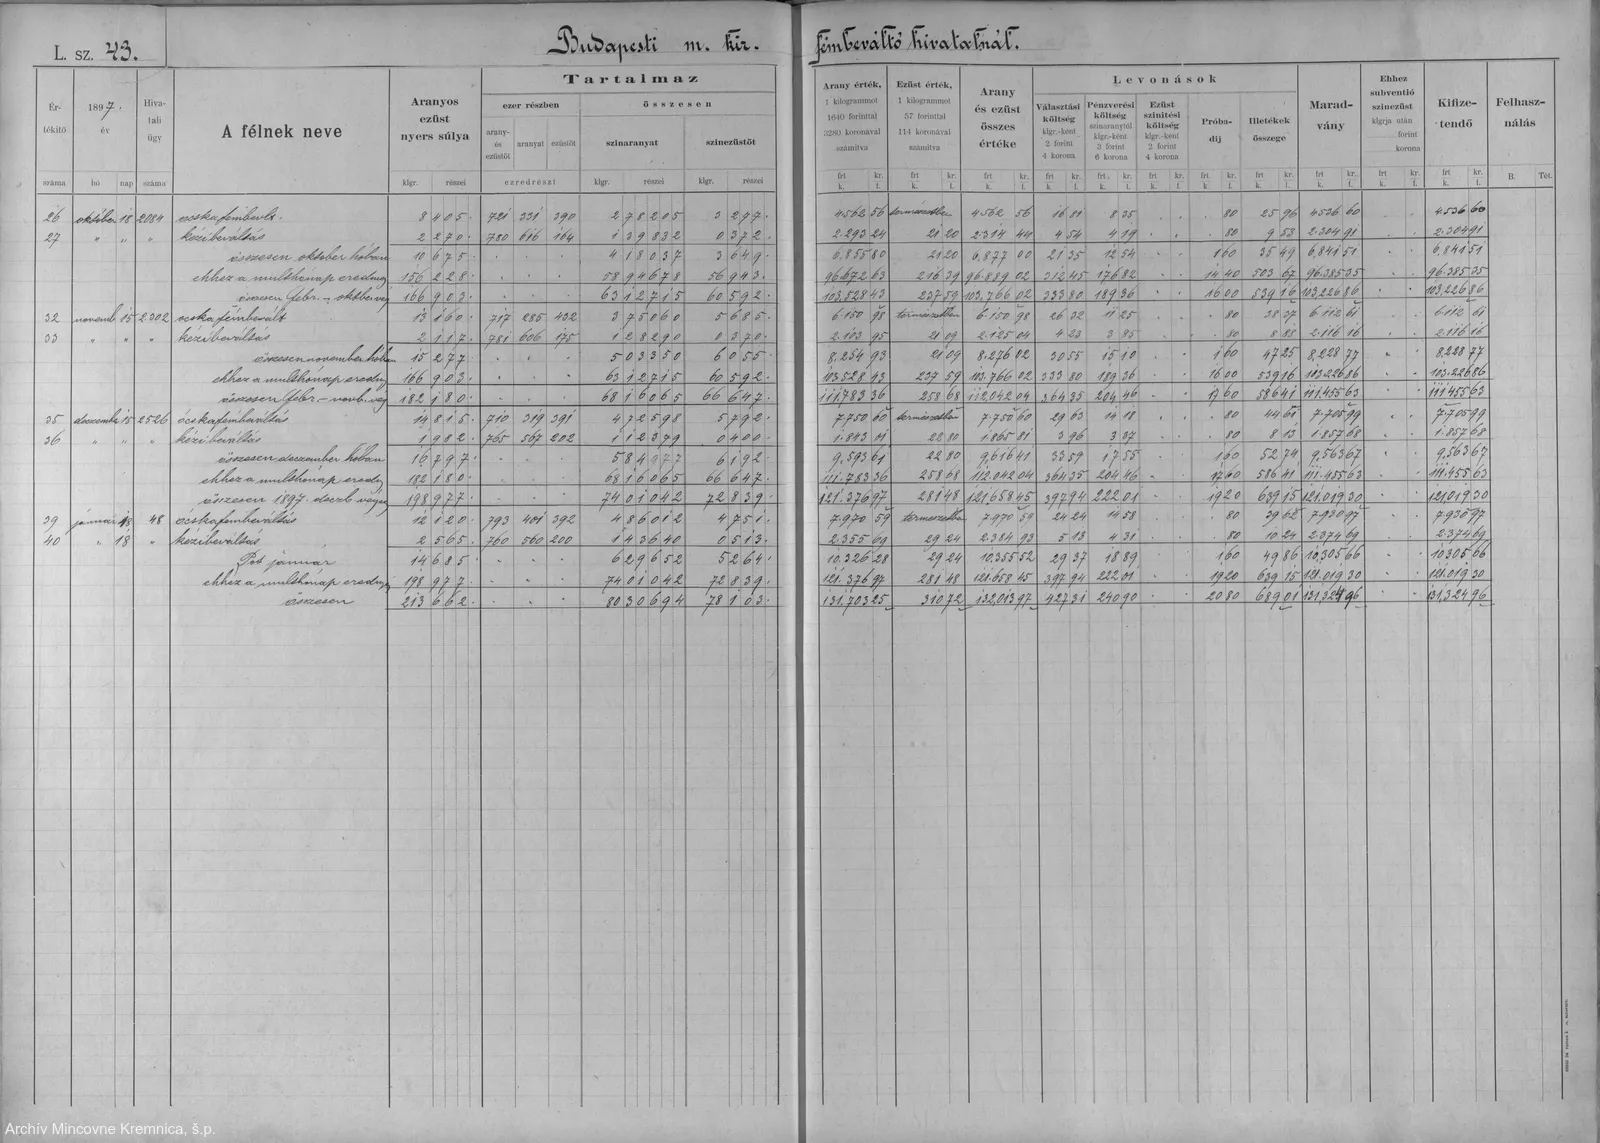 L. sz. 43.
Budapesti m. kir. fémbeváltó hivatalnál.
Ér-
tékitő
száma
1897.
év
hó nap
Hiva-
tali
ügy
száma
A félnek neve
Aranyos
ezüst
nyers súlya
klgr. részei
Tartalmaz
ezer részben
arany-
és
ezüstöt
aranyat ezüstöt
ezredrészt
összesen
szinaranyat szinezüstöt
klgr. részei klgr. részei
Arany érték,
1 kilogrammot
1640 forinttal
3280 koronával
számitva
Ezüst érték,
1 kilogrammot
57 forinttal
114 koronával
számitva
Arany
és ezüst
összes
értéke
Levonások
Választási
költség
klgr.-ként
2 forint
4 korona
Pénzverési
költség
szinaranytól
klgr.-ként
3 forint
6 korona
Ezüst
szinitési
költség
klgr.-ként
2 forint
4 korona
Próba-
dij
Illetékek
összege
Marad-
vány
Ehhez
subventió
szinezüst
klgrja után
forint
korona
Kifize-
tendő
Felhasz-
nálás
frt kr. frt kr. frt kr. frt kr. frt kr. frt kr. frt kr. frt kr. frt kr. frt kr. frt kr.
k. f. k. f. k. f. k. f. k. f. k. f. k. f. k. f. k. f. k. f. k. f. B. Tét.
26 október 18 2084 ócska fémbevlt. 8 405 721 331 390 2 78205 3 277 4562 56 természetben 4562 56 16 81 8 35 80 25 96 4536 60 4.536 60
27 " " " kézibeváltás 2 270 780 616 164 1 39832 0 372 2.293 24 21 20 2.314 44 4 54 4 19 80 9 53 2.304 91 2.304 91
összesen október hóban 10 675 4 18037 3 649 6.855 80 21 20 6.877 00 21 35 12 54 1 60 35 49 6,841 51 6,841 51
ehhez a multhónap eredmy 156 228 58 94678 56 943 96.672 63 216 39 96.889 02 312 45 176 82 14 40 503 67 96.385 35 96.385 35
összesen febr. - október vég 166 903 63 12715 60 592 103,528 43 237 59 103,766 02 333 80 189 36 16 00 539 16 103,226 86 103,226 86
32 novemb 15 2302 ócska fémbevált 13 160 717 285 432 3 75060 5 685 6.150 98 természetben 6.150 98 26 32 11 25 80 38 37 6 112 61 6.112 61
33 " " " kézibeváltás 2 117 781 606 175 1 28290 0 370 2.103 95 21 09 2.125 04 4 23 3 85 80 8 88 2.116 16 2.116 16
összesen november hóban 15 277 5 03350 6 055 8,254 93 21 09 8,276 02 30 55 15 10 1 60 47 25 8,228 77 8,228 77
ehhez a multhónap eredmy 166 903 63 12715 60 592 103.528 43 237 59 103.766 02 333 80 189 36 16 00 539 16 103.226 86 103.226 86
összesen febr. - novb. vég 182 180 68 16065 66 647 111.783 36 258 68 112.042 04 364 35 204 46 17 60 586 41 111.455 63 111.455 63
35 deczember 15 2526 ócskafémbeváltás 14 815 710 319 391 4 72598 5 792 7.750 60 természetben 7.750 60 29 63 14 18 80 44 61 7.705 99 7.705 99
36 " " " kézibeváltás 1 982 765 567 202 1 12379 0 400 1.843 01 22 80 1.865 81 3 96 3 37 80 8 13 1.857 68 1.857 68
összesen deczember hóban 16 797 5 84977 6 192 9,593 61 22 80 9,616 41 33 59 17 55 1 60 52 74 9,563 67 9,563 67
ehhez a multhónap eredmy 182 180 68 16065 66 647 111.783 36 258 68 112.042 04 364 35 204 46 17 60 586 41 111.455 63 111.455 63
összesen 1897. deczb végeig 198 977 74 01042 72 839 121.376 97 281 48 121.658 45 397 94 222 01 19 20 639 15 121.019 30 121.019 30
39 január 18 48 ócskafémbeváltás 12 120 793 401 392 4 86012 4 751 7.970 59 természetben 7.970 59 24 24 14 58 80 39 62 7.930 97 7.930 97
40 " 18 " kézibeváltás 2 565 760 560 200 1 43640 0 513 2.355 69 29 24 2.384 93 5 13 4 31 80 10 24 2.374 69 2.374 69
Pót január 14 685 6 29652 5 264 10.326 28 29 24 10.355 52 29 37 18 89 1 60 49 86 10,305 66 10305 66
ehhez a multhónap eredmy 198 977 74 01042 72 839 121.376 97 281 48 121.658 45 397 94 222 01 19 20 639 15 121.019 30 121.019 30
összesen 213 662 80 30694 78 103 131.703 25 310 72 132,013 97 427 31 240 90 20 80 689 01 131,324 96 131,324 96
Archív Mincovne Kremnica, š.p.